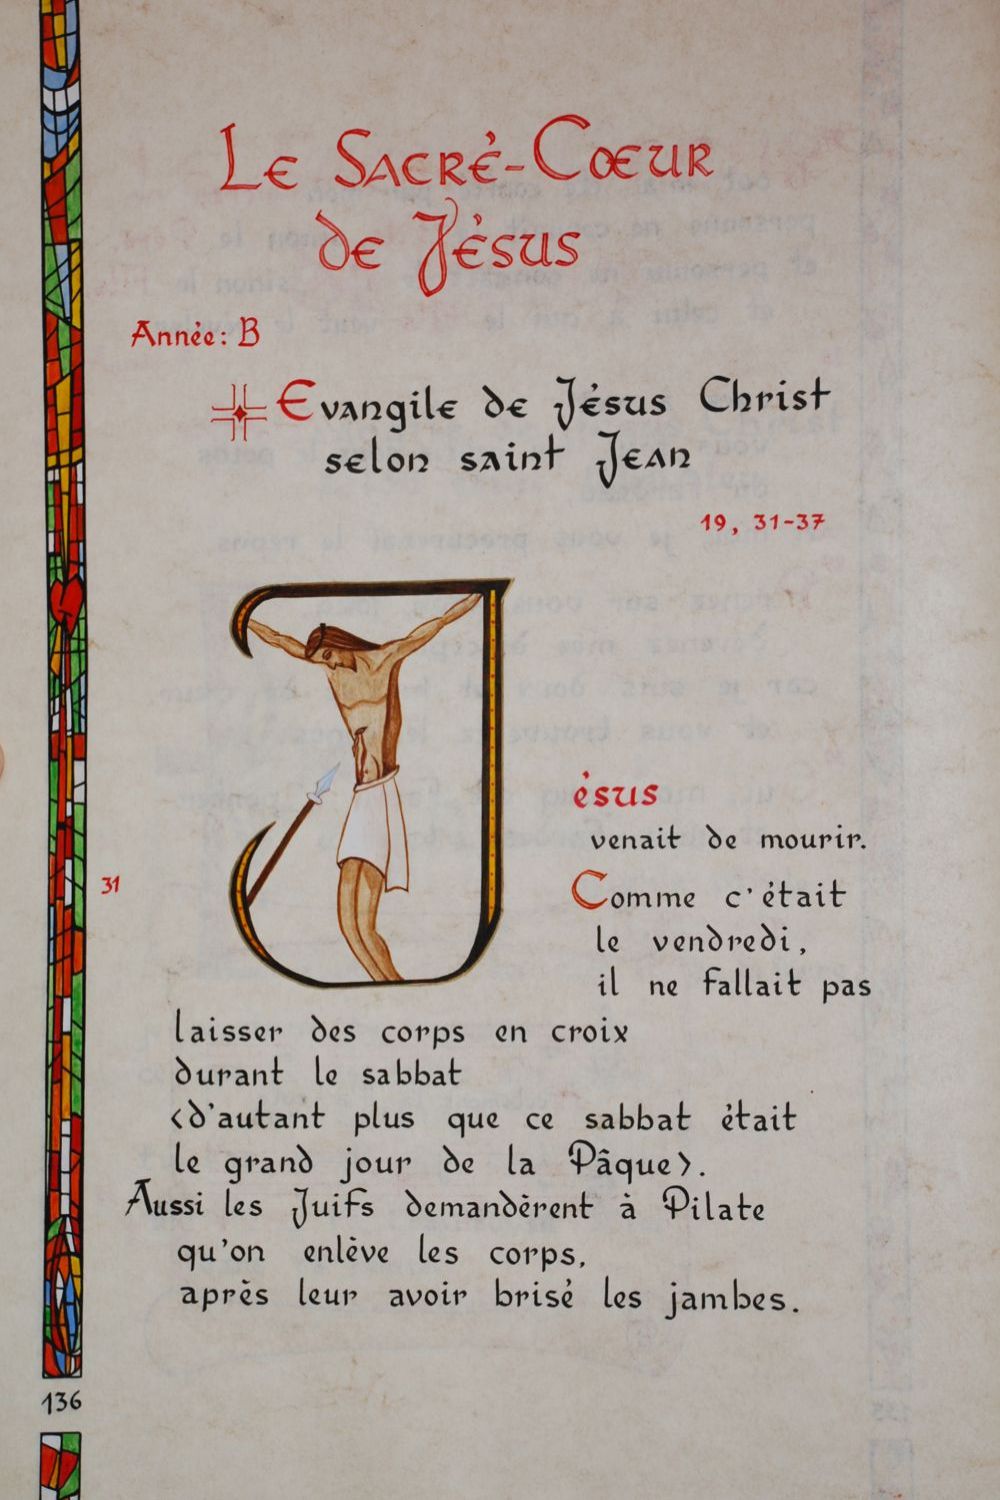 Le Sacré-Cœur
de Jésus
Année: B
Evangile de Jésus Christ
selon saint Jean
19, 31-37
Jésus
venait de mourir.
31
Comme c'était
le vendredi,
il ne fallait pas
laisser des corps en croix
durant le sabbat
<d'autant plus que ce sabbat était
le grand jour de la Pâque>.
Aussi les Juifs demandèrent à Pilate
qu'on enlève les corps,
après leur avoir brisé les jambes.
136